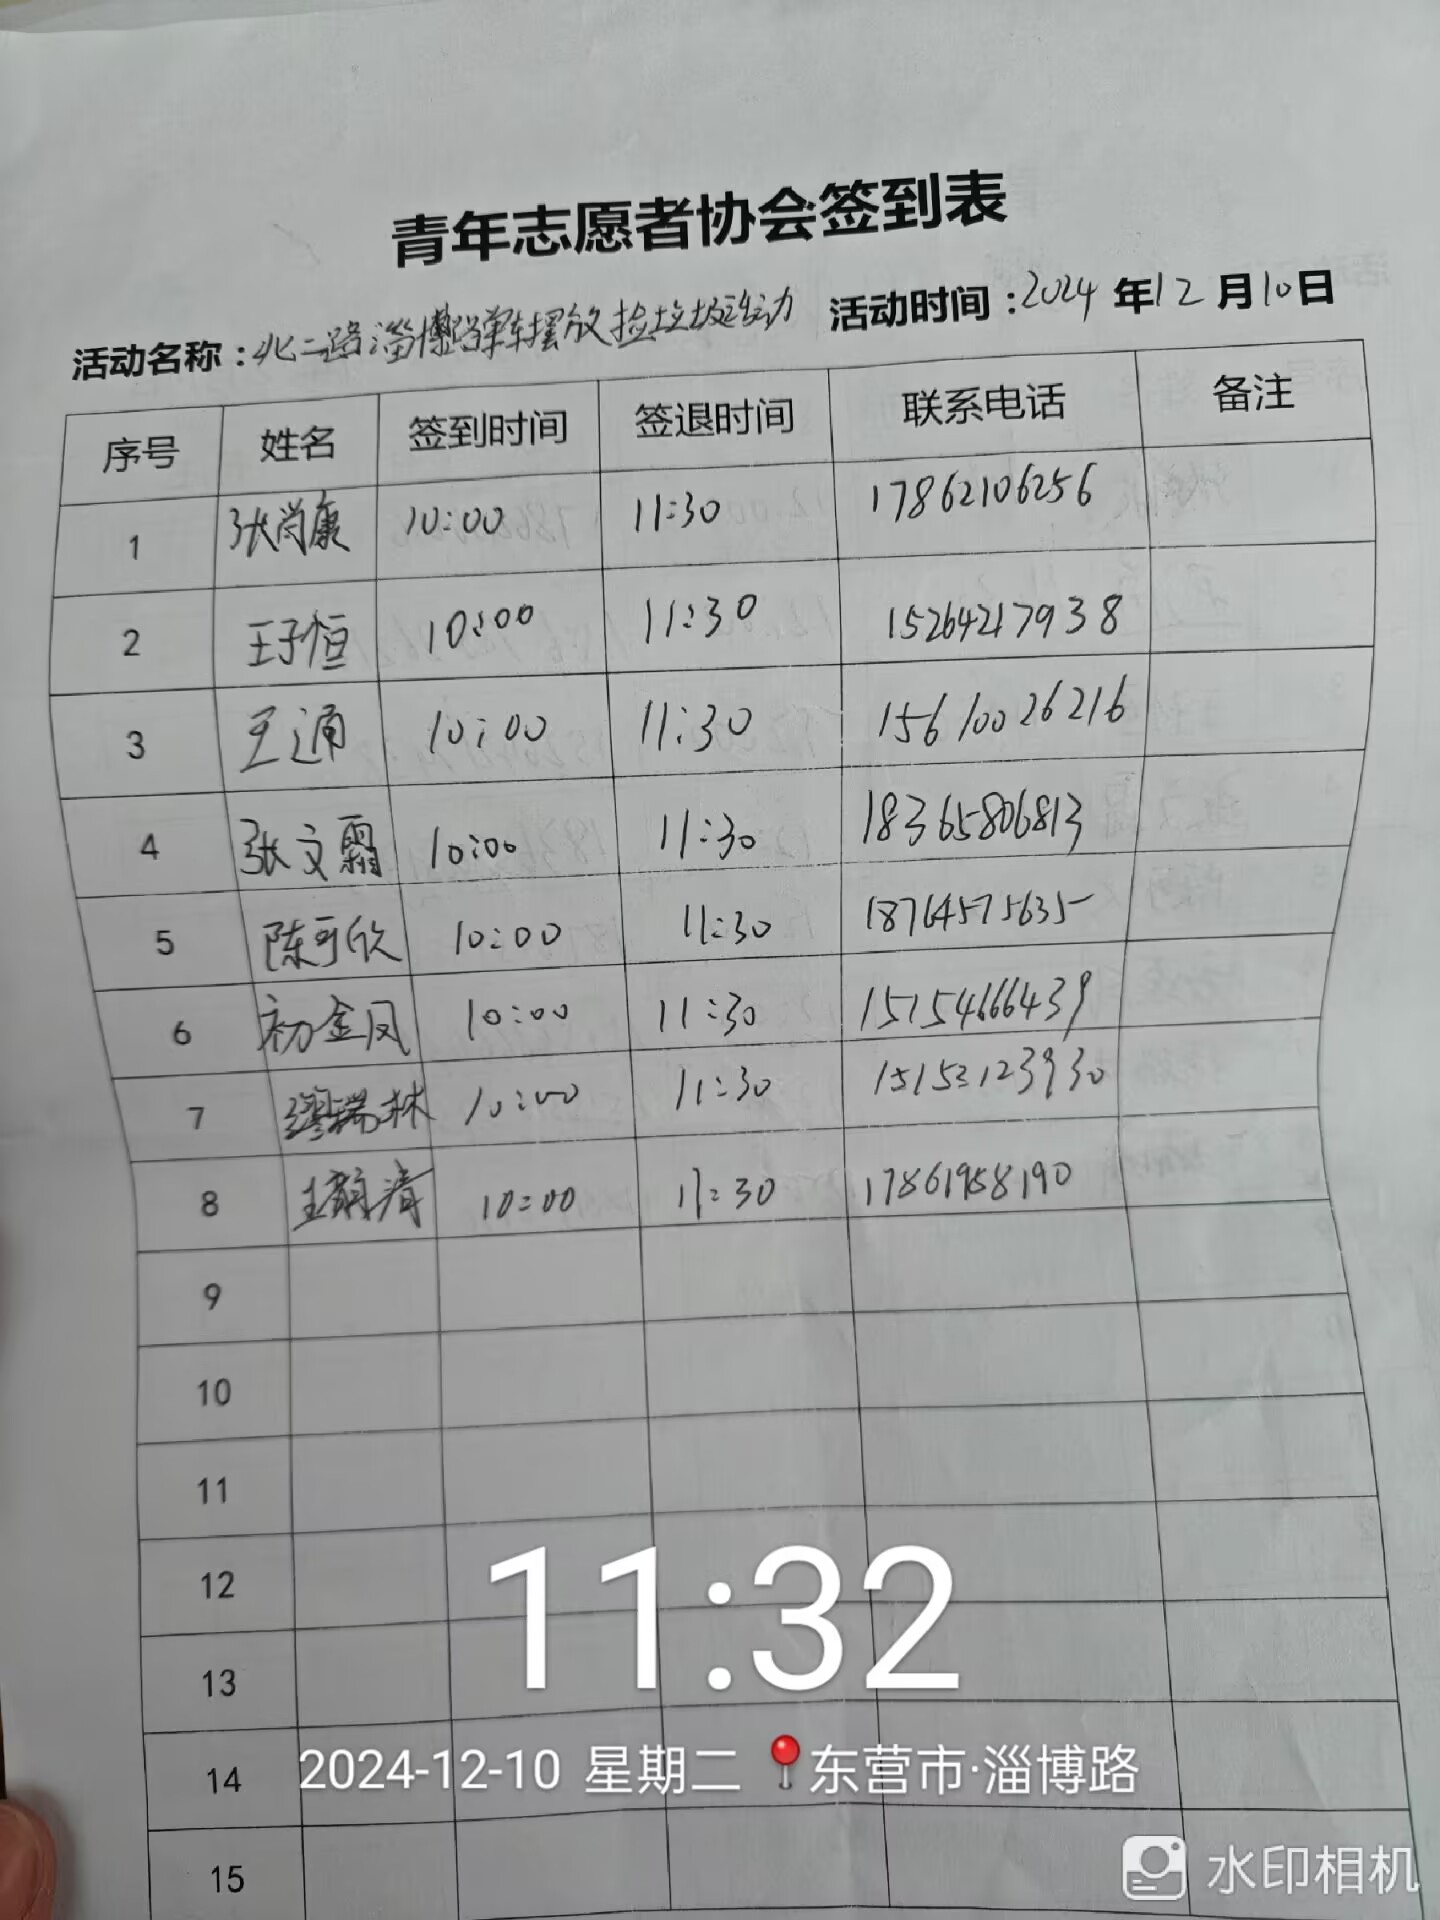 青年志愿者协会签到表
活动名称：北二路淄博路单车摆放捡垃圾活动 活动时间：2024年12月10日
序号 姓名 签到时间 签退时间 联系电话 备注
1 张尚康 10:00 11:30 17862106256
2 王子恒 10:00 11:30 15264217938
3 王通 10:00 11:30 15610026216
4 张文霸 10:00 11:30 18365806813
5 陈可欣 10:00 11:30 18764575635
6 初金凤 10:00 11:30 15154666439
7 缪瑞林 10:00 11:30 15153123930
8 王韵清 10:00 11:30 17861958190
9
10
11
12
13
14
15
11:32
2024-12-10 星期二 东营市·淄博路
水印相机